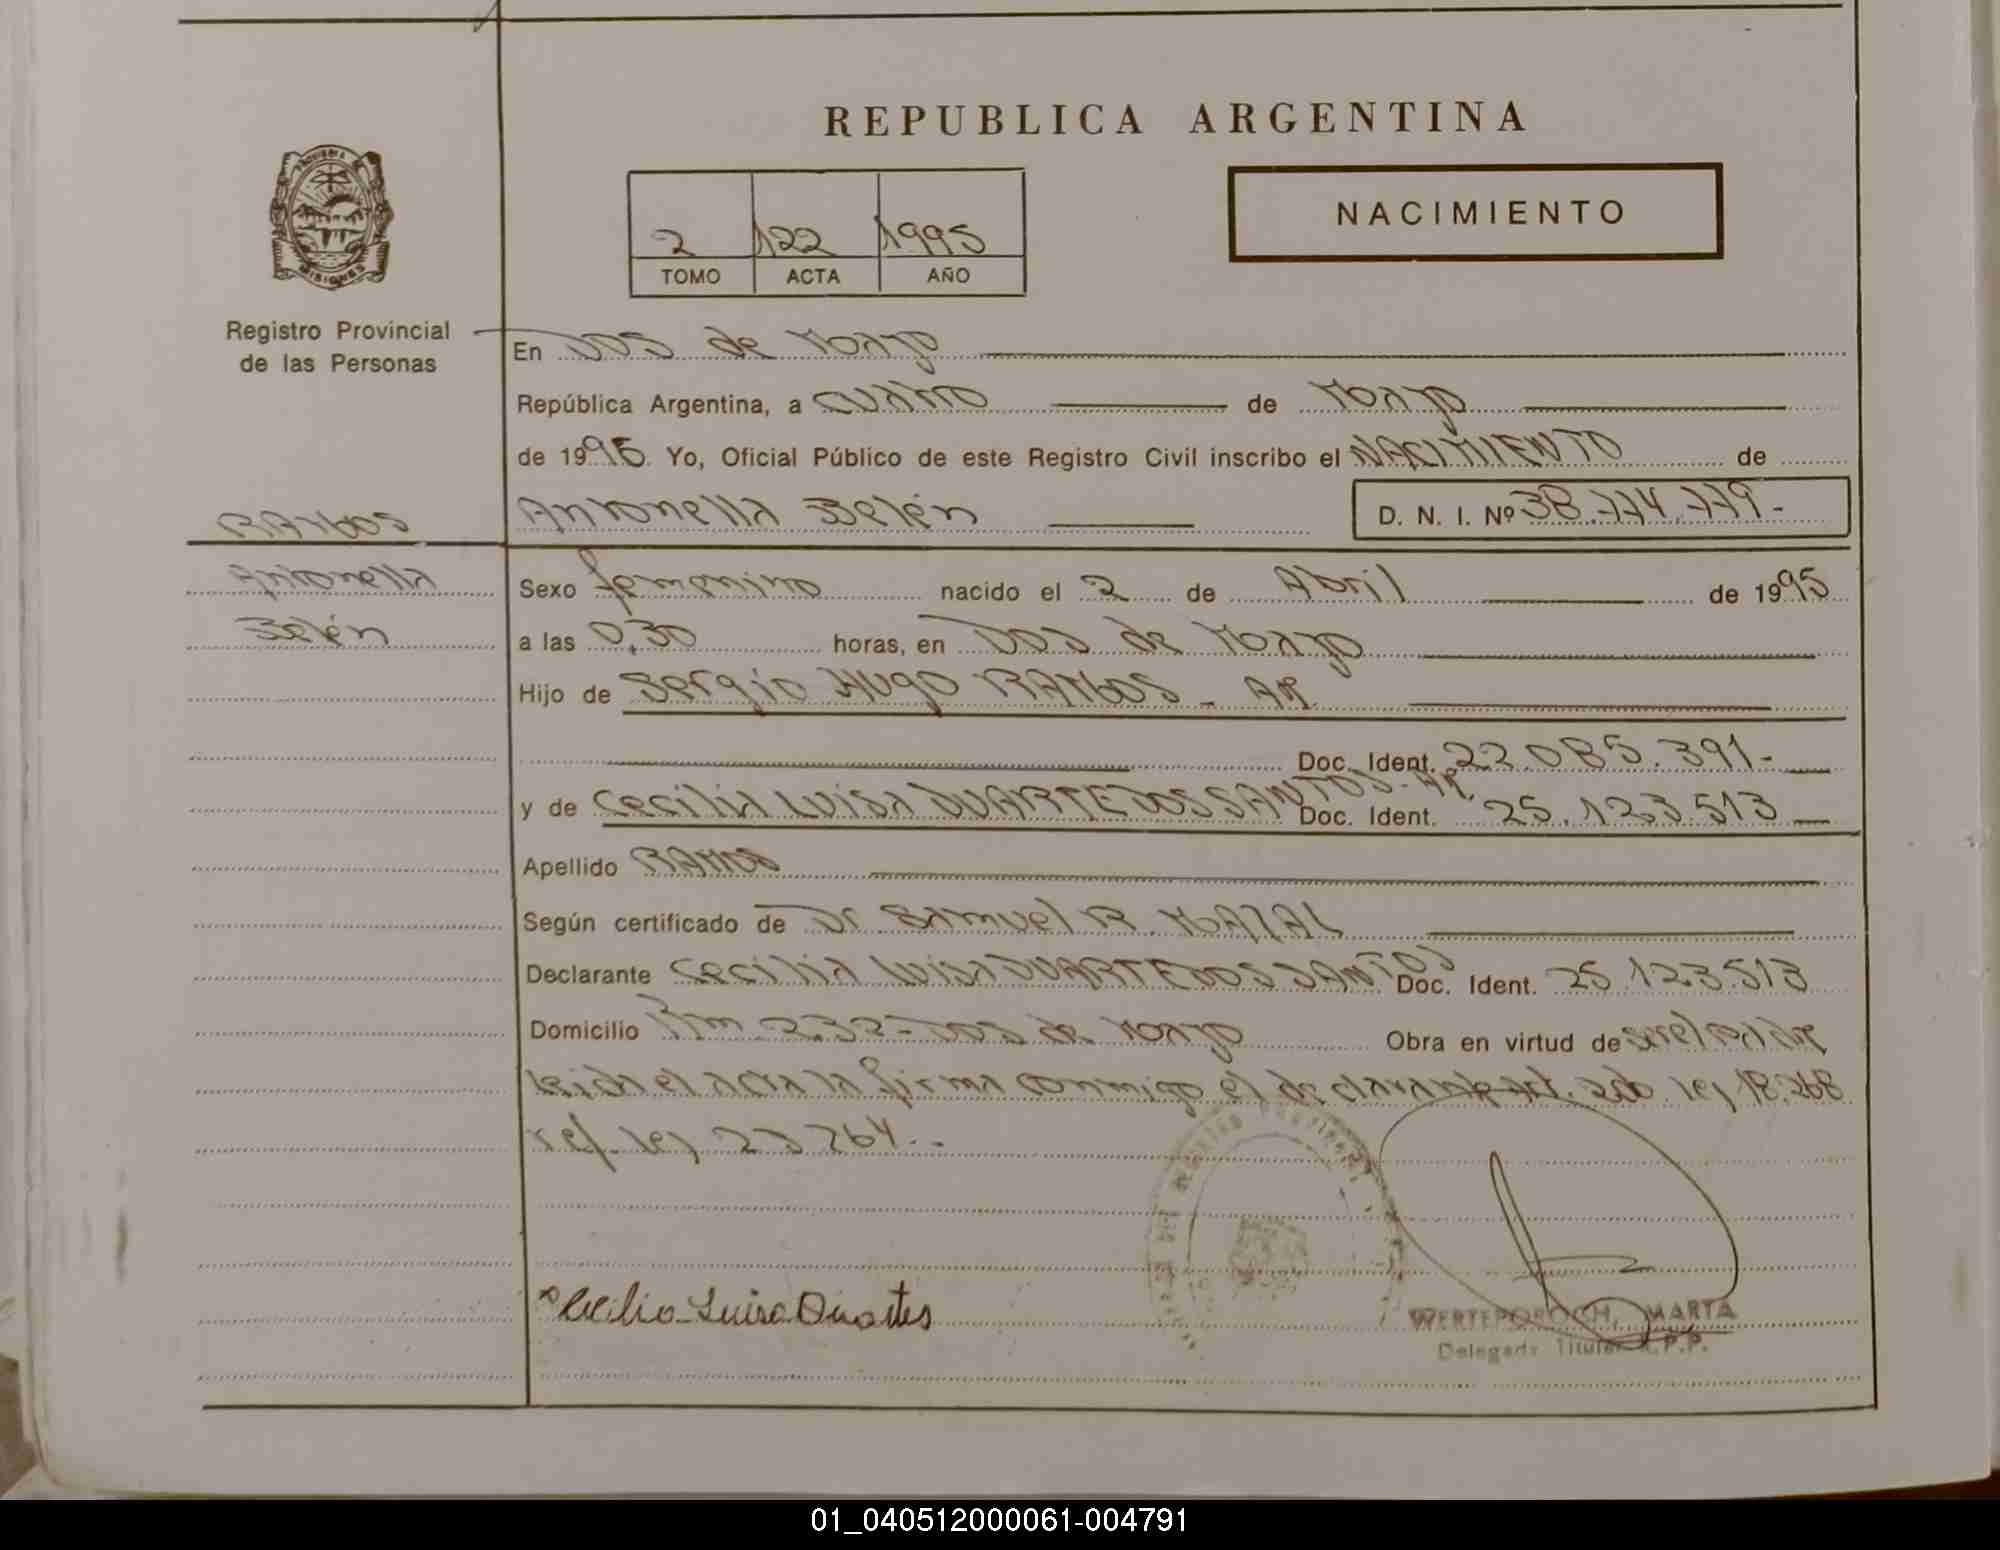 REPUBLICA ARGENTINA
2 122 1995
TOMO ACTA AÑO
NACIMIENTO
PROVINCIA DE MISIONES
Registro Provincial
de las Personas
En Dos de Mayo
República Argentina, a cuatro de Mayo
de 1995. Yo, Oficial Público de este Registro Civil inscribo el NACIMIENTO de
RAMOS
Antonella Belén D. N. I. Nº 38.774.779.-
Antonella
Sexo femenino nacido el 2 de Abril de 1995
Belén
a las 0,30 horas, en Dos de Mayo
Hijo de Sergio Hugo RAMOS - AR
Doc. Ident. 22.085.391-
y de Cecilia Luisa DUARTE DOS SANTOS - AR. Doc. Ident. 25.123.513
Apellido RAMOS
Según certificado de Dr Samuel R. MAZAL
Declarante Cecilia Luisa DUARTE DOS SANTOS Doc. Ident. 25.123.513
Domicilio Km 232 - Dos de Mayo Obra en virtud de ser el
leida el acta la firma conmigo el declarante Art. ley 18.268
ref. ley 23264..
Cecilia Luisa Duartes
WERTEPOROCH, MARTA
Delegada Titular R.P.P.
01_040512000061-004791